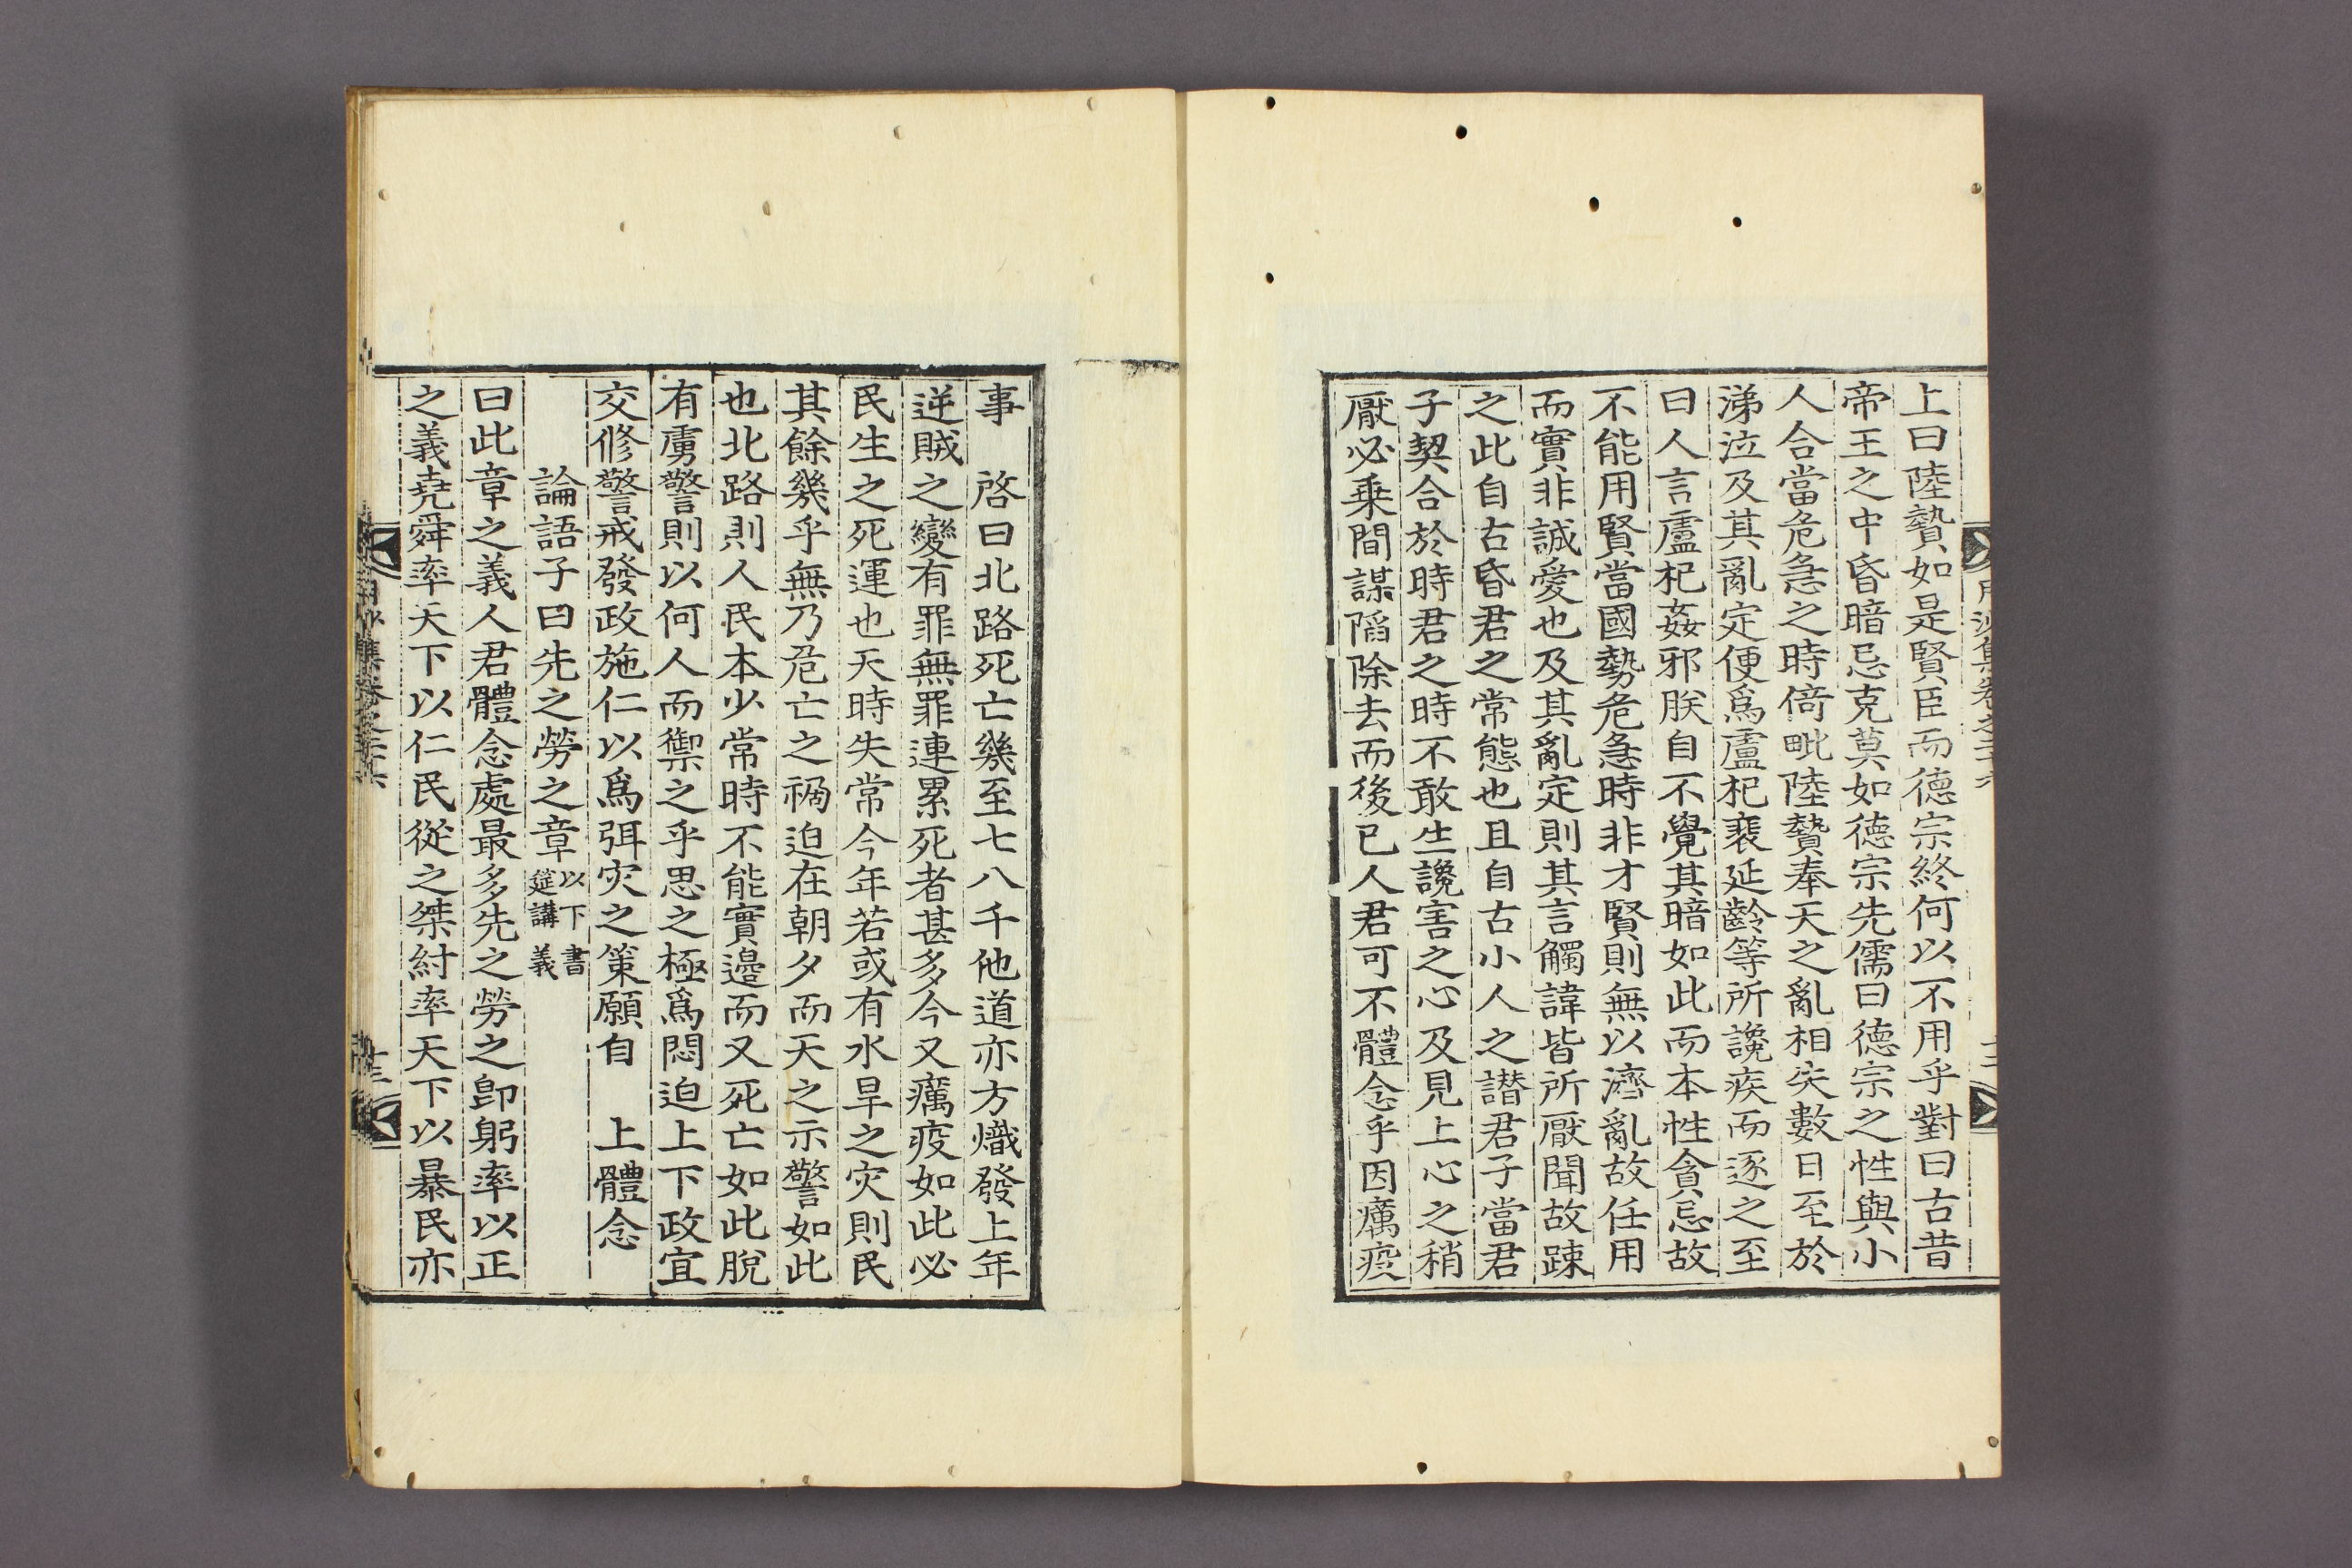 上曰陸贄如是賢臣而德宗終何以不用乎對曰古昔
帝王之中昏暗忌克莫如德宗先儒曰德宗之性與小
人合當危急之時倚毗陸贄奉天之亂相失數日至於
涕泣及其亂定便爲盧杞裵延齡等所讒疾而逐之至
曰人言盧杞姦邪朕自不覺其暗如此而本性貪忌故
不能用賢當國勢危急時非才賢則無以濟亂故任用
而實非誠愛也及其亂定則其言觸諱皆所厭聞故踈
之此自古昏君之常態也且自古小人之譖君子當君
子契合於時君之時不敢生讒害之心及見上心之稍
厭必乗間謀陷除去而後已人君可不體念乎因癘疫
事　啓曰北路死亡幾至七八千他道亦方熾發上年
逆賊之變有罪無罪連累死者甚多今又癘疫如此必
民生之死運也天時失常今年若或有水旱之灾則民
其餘幾乎無乃危亡之禍迫在朝夕而天之示警如此
也北路則人民本少常時不能實邊而又死亡如此脫
有虜警則以何人而禦之乎思之極爲悶迫上下政宜
交修警戒發政施仁以爲弭灾之策願自　上體念
論語子曰先之勞之章以下書
筵講義
曰此章之義人君體念處最多先之勞之卽躬率以正
之義堯舜率天下以仁民從之桀紂率天下以暴民亦
十三